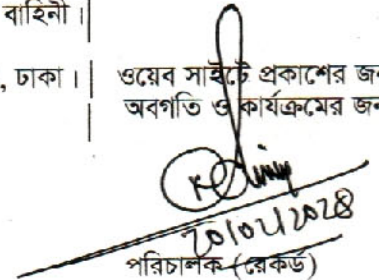 বাহিনী।
, ঢাকা। ওয়েব সাইটে প্রকাশের জন
অবগতি ও কার্যক্রমের জন
পরিচালক (রেকর্ড)